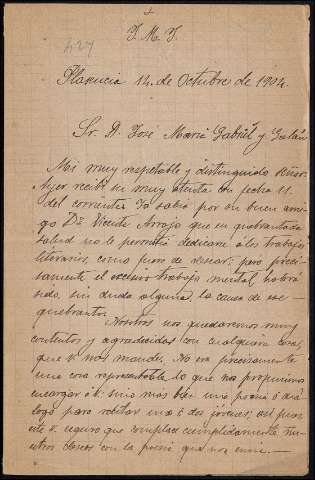 +
J. M. J.
427
Plasencia 14 de Octubre de 1904.
Sr. D. José María Gabriel y Galán
Mi muy respetable y distinguido Señor:
Ayer recibí su muy atenta con fecha 11.
del corriente. Ya sabía por su buen ami-
go Dn Vicente Arrojo que su quebrantada
salud no le permitía dedicarse a los trabajos
literarios, como fuera de desear; pero preci-
samente el excesivo trabajo mental habrá
sido, sin duda alguna, la causa de ese
quebranto.
Nosotros nos quedaremos muy
contentos y agradecidos con cualquiera cosa,
que V. nos mande. No era precisamente
una cosa representable lo que nos propusimos
encargar á V. sino mas bien una poesía ó diá-
logo para recitar uno ó dos jóvenes; así pues
esté V. seguro que complace cumplidamente nu-
estros deseos con la poesía que nos envíe.—